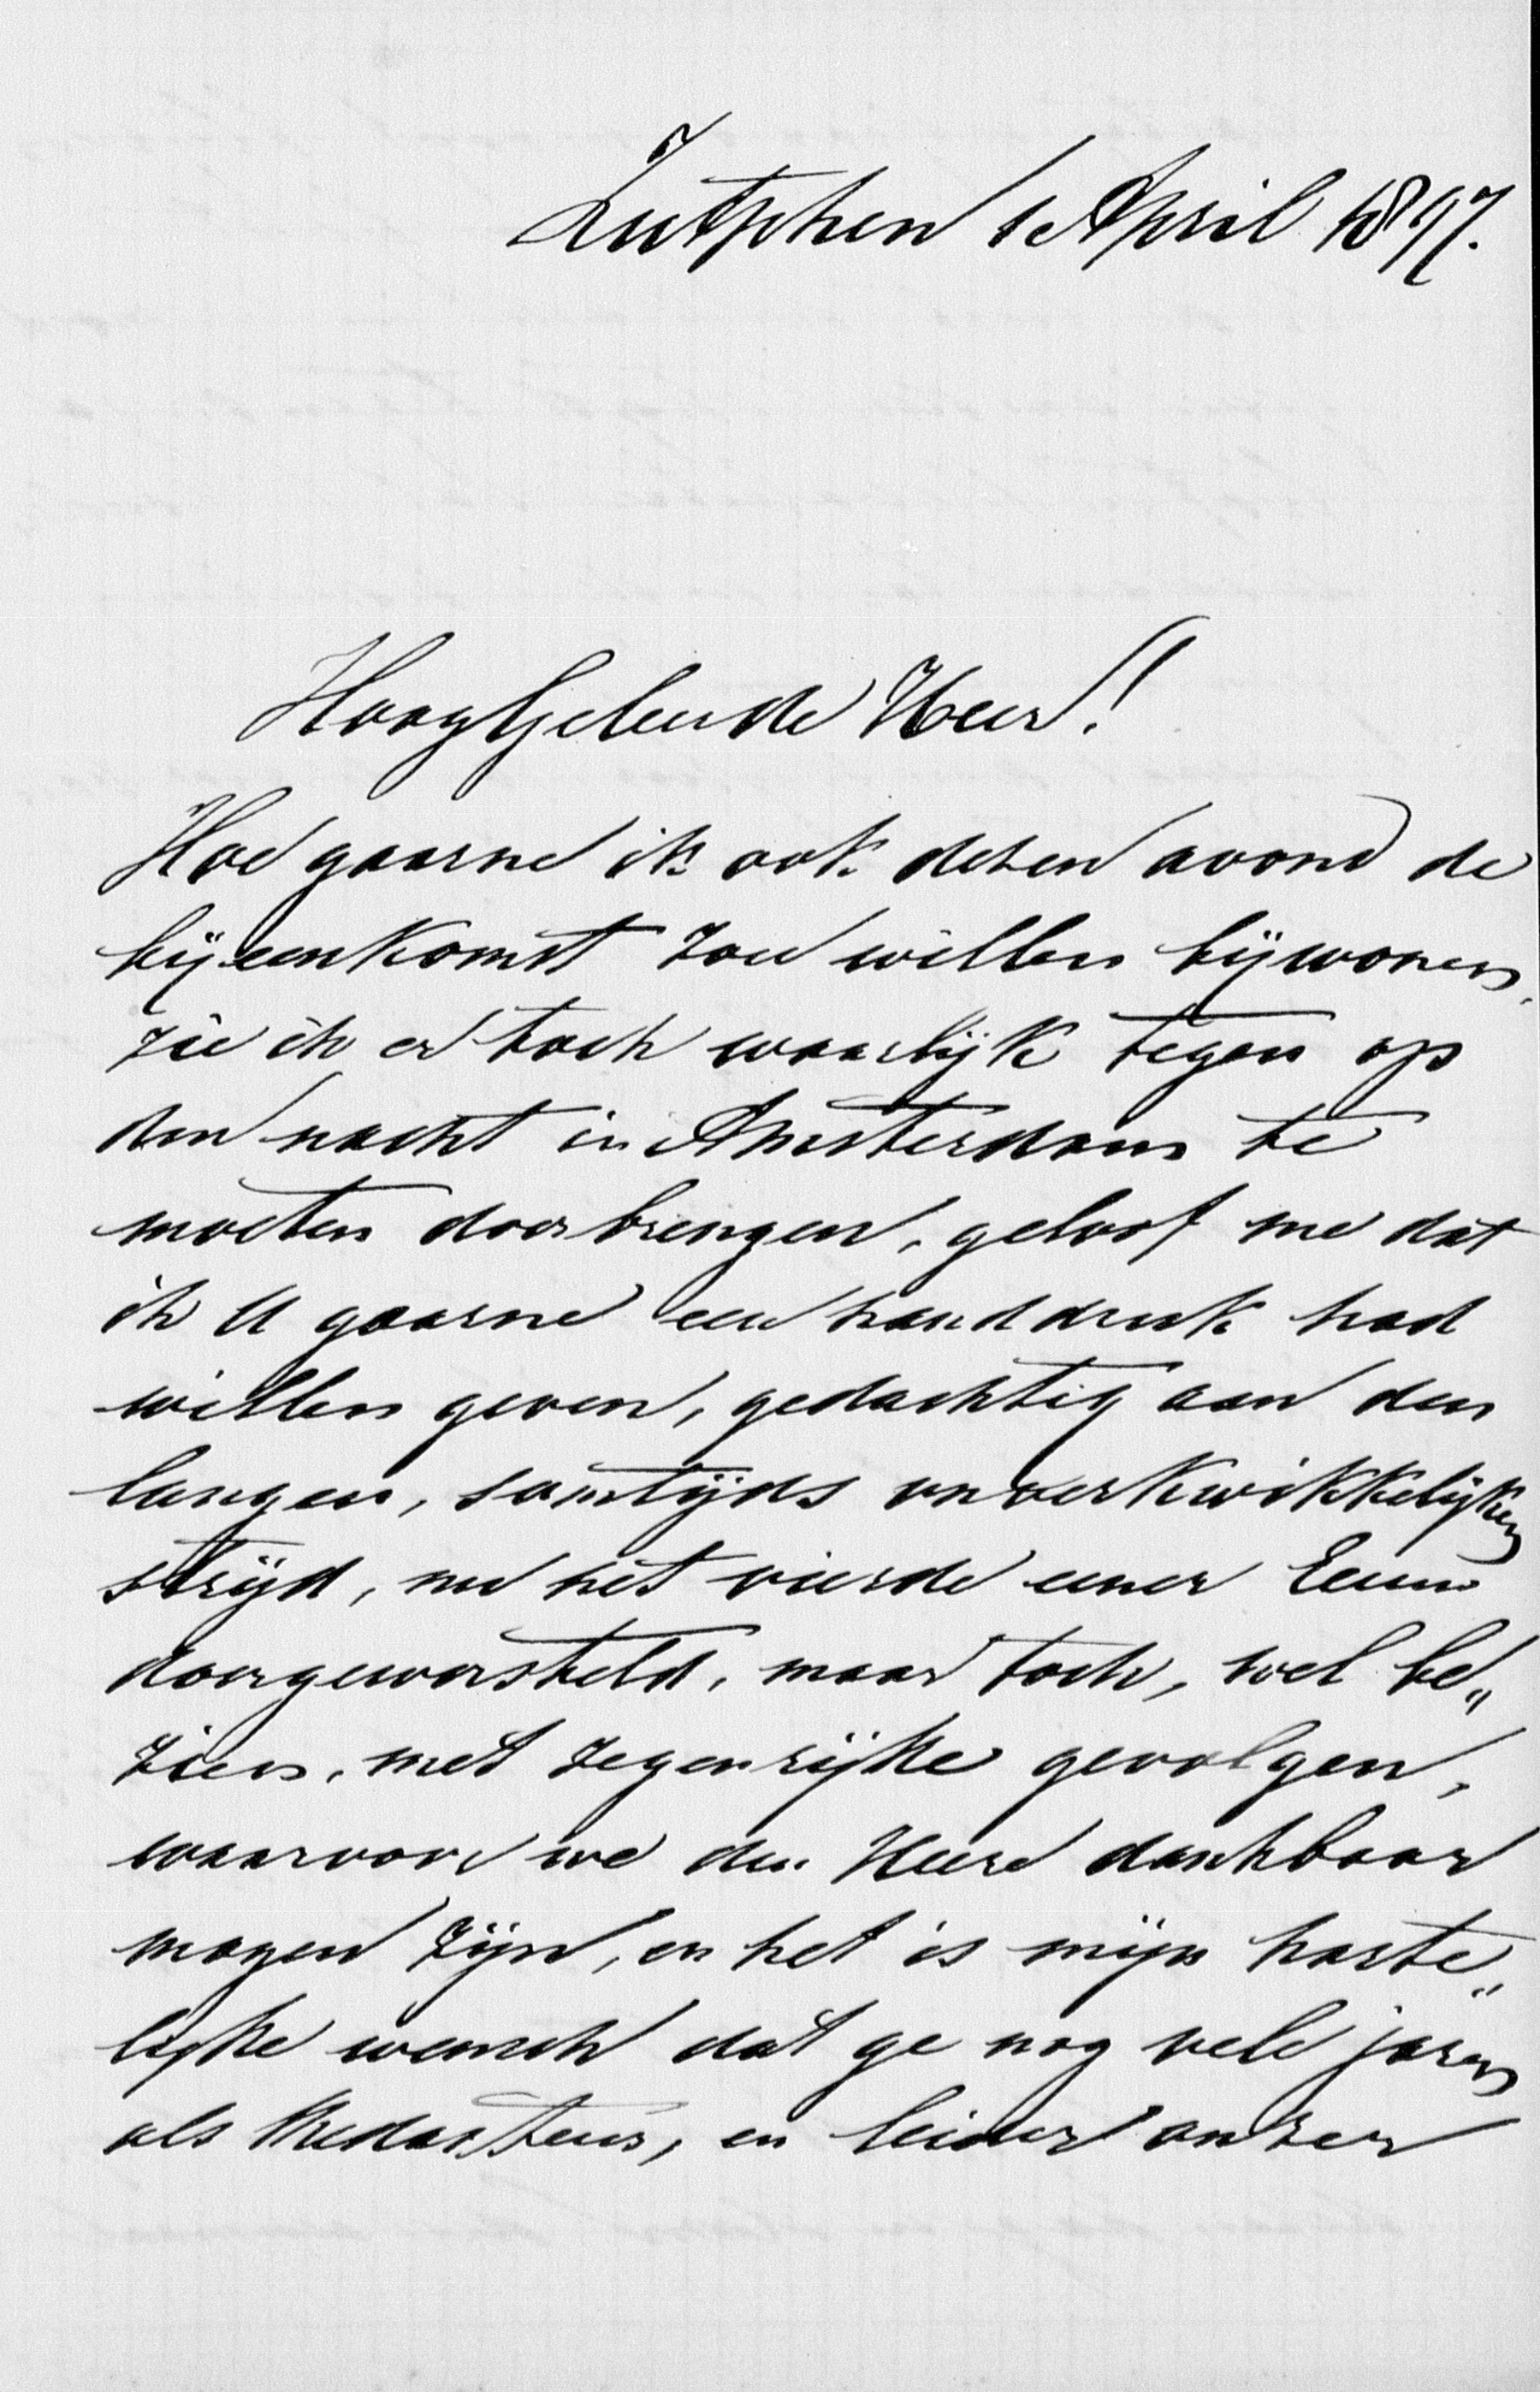 Zutphen 1 April 1897.
Hooggeleerde Heer!
Hoe gaarne ik ook dezen avond de
bijeenkomst zou willen bijwonen,
zie ik er toch waarlijk tegen op
den nacht in Amsterdam te
moeten doorbrengen, geloof me dat
ik U gaarne een handdruk had
willen geven, gedachtig aan den
langen, somtijds onverkwikkelijken
strijd, nu het vierde eener Eeuw
doorgeworsteld, maar toch, wel be„
zien, met zegenrijke gevolgen,
waarvoor we den Heere dankbaar
mogen zijn, en het is mijn harte„
lijke wensch dat ge nog vele jaren
als Redacteur, en leider onzer